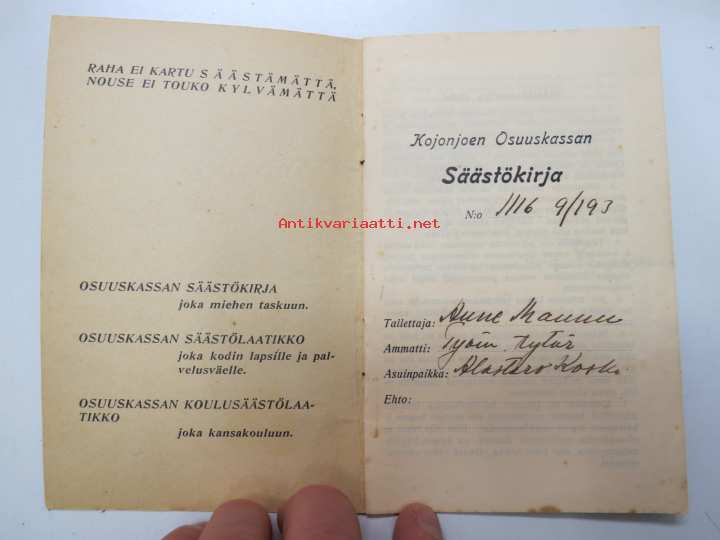 RAHA EI KARTU SÄÄSTÄMÄTTÄ,
NOUSE EI TOUKO KYLVÄMÄTTÄ
OSUUSKASSAN SÄÄSTÖKIRJA
joka miehen taskuun.
OSUUSKASSAN SÄÄSTÖLAATIKKO
joka kodin lapsille ja pal-
velusväelle.
OSUUSKASSAN KOULUSÄÄSTÖLAA-
TIKKO
joka kansakouluun.
Kojonjoen Osuuskassan
Säästökirja
N:o 1116 9/193
Tallettaja: Anne
Ammatti: Työm. tytär
Asuinpaikka: Alastaro
Ehto:
Antikvariaatti.net